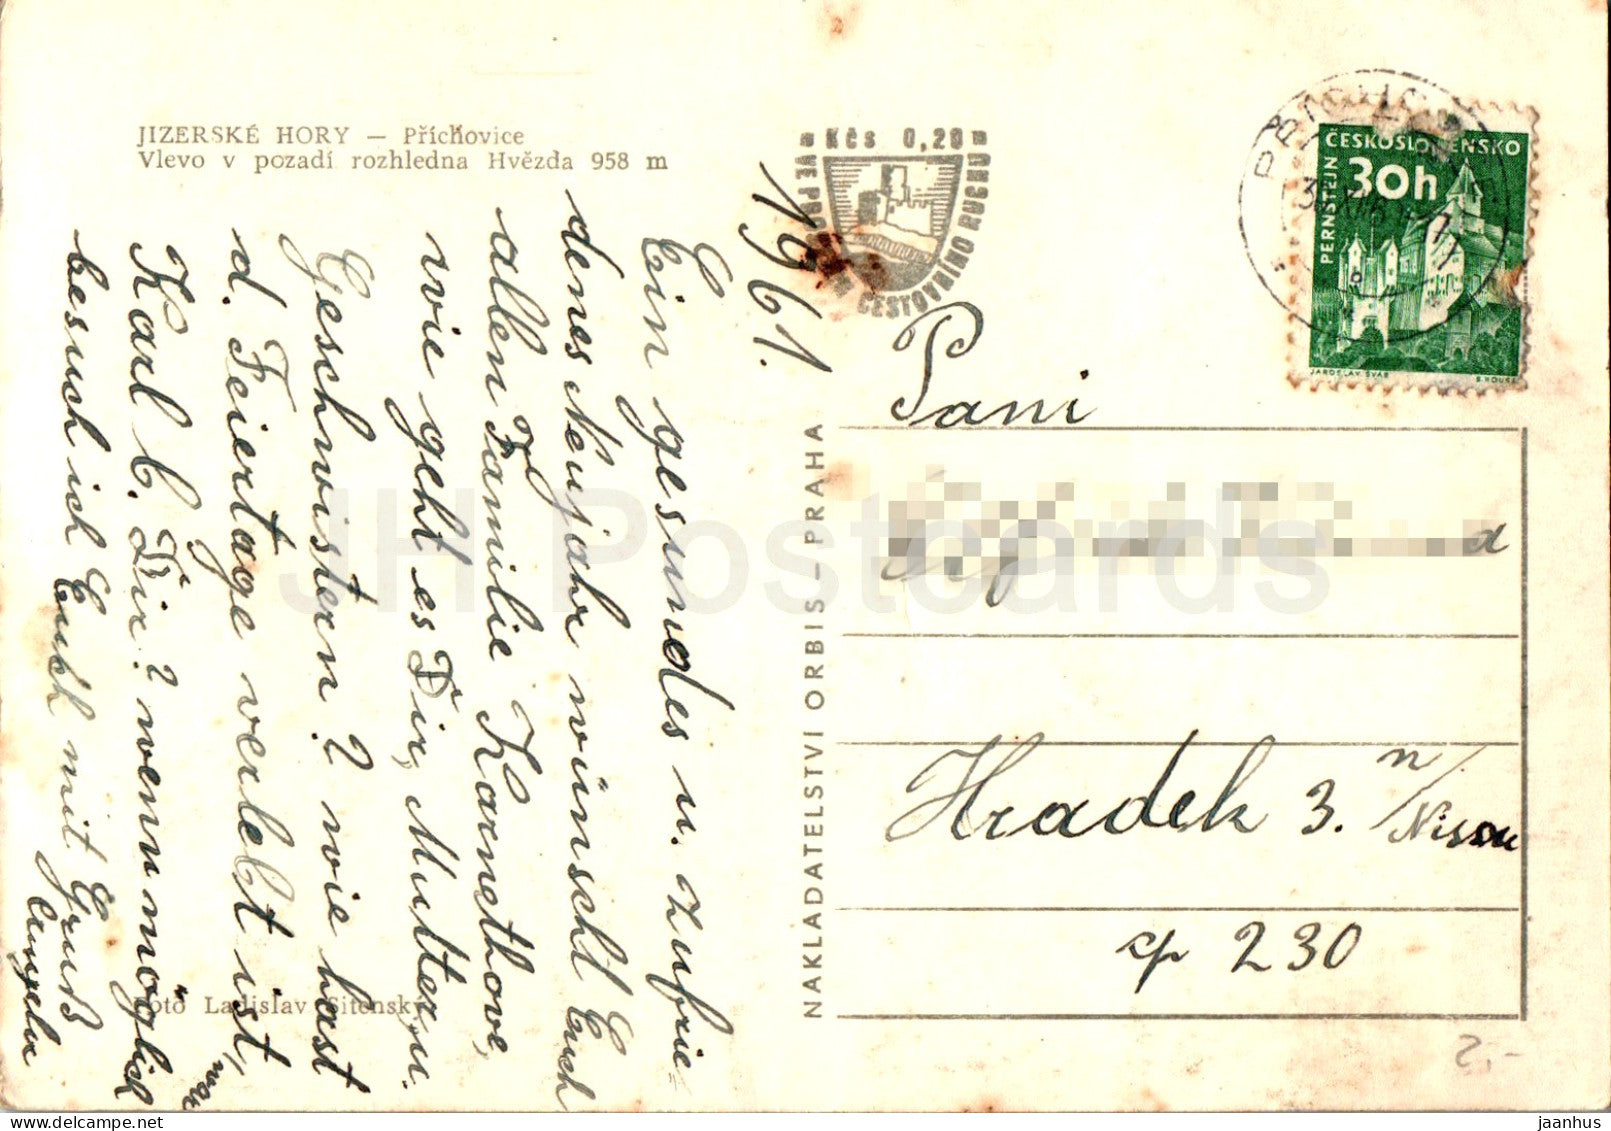 JIZERSKÉ HORY — Příchovice
Vlevo v pozadí rozhledna Hvězda 958 m
1961.
Ein gesundes u. zufrie-
denes Neujahr wünscht Euch
allen Familie
wie geht es Dir, Mutter u.
Geschwistern? wie hast
d. Feiertage verlebt ist,
Karl b. Dir? wenn möglich
besuch ich Euch mit Gruß
Foto Ladislav Sitenský
NAKLADATELSTVÍ ORBIS — PRAHA
Kčs 0,20
VE PROSPĚCH CESTOVNÍHO RUCHU
ČESKOSLOVENSKO
30h
PERNŠTEJN
JAROSLAV ŠVÁB
Paní
Hradek 3. n/Nissou
čp 230
2,-
JH Postcards
jaanhus